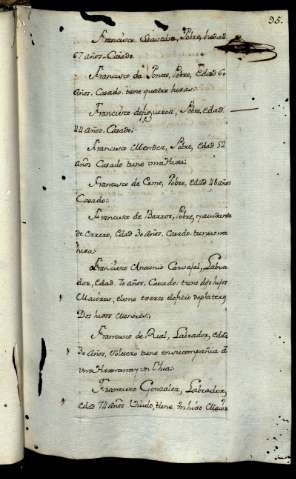 35.
Francisco Pobre, hedad
67 años. Casado.
Francisco da Ponte, Pobre, Edad 60
años. Casado. tiene quatro hixos.
Francisco de figueroa, Pobre, edad
44 años. Casado.
Francisco Mendez, Pobre, Edad 52
años Casado tiene una Hixa.
Francisco de Pobre, edad 48 años
Casado.
Francisco de Barros, Pobre,
de Edad 30 años. Casado. tiene una
hixa.
Francisco Antonio Carvajal, Labra
dor, edad. 70 años. Casado: tiene dos hijos
Maiores, el uno
Dos hixos menores.
Francisco de Rial, Labrador, edad
años, soltero tiene en su compania a
una Hermana y un thio.
Francisco Gonzalez, Labrador,
edad 74 años Viudo, tiene Un hixo Maior